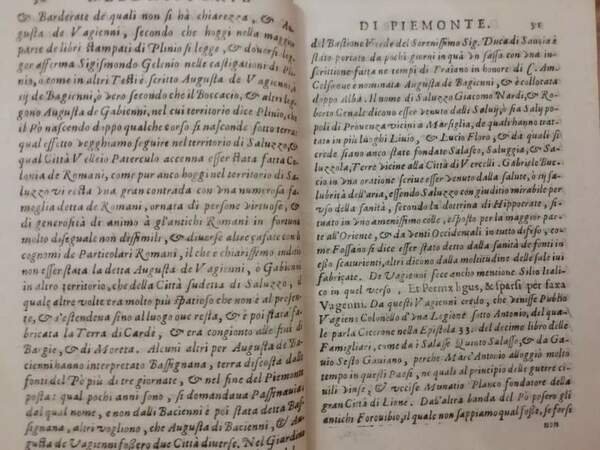 & Barderate de quali non si hà chiarezza, & Au
gusta de Vagienni, secondo che hoggi nella maggior
parte de libri stampati di Plinio si legge, & doversi leg
gere afferma Sigismondo Gelenio nelle castigationi di Pli
nio, ò come in altri Testi è scritto Augusta de Vagienni, ò
ij de Bagienni, ò vero secondo che il Boccacio, & altri leg
gono Augusta de Gabienni, nel cui territorio dice Plinio, che
il Pò nascendo doppo qualche corso si nasconde sotto terra:
qual effetto vegghiamo seguire nel territorio di Saluzzo, &
qual Città Velleio Paterculo accenna esser stata fatta Co
lonia de Romani, come pur anco hoggi nel territorio di Sa
luzzo vi resta una gran contrada con una numerosa fa
meglia detta de Romani, ornata di persone virtuose, &
di generosità di animo à gl'antichi Romani in fortuna
molto diseguale non dissimili, & diverse altre casate con
cognomi de Particolari Romani, il che è chiarissimo indicio
non esser stata la detta Augusta de Vagienni, ò Gabienni
in altro territorio, che della Città sudetta di Saluzzo, il
quale altre volte era molto più spatioso che non è al prese
te, & s'estendeva sino al luogo que resta, & è poi stata fa-
bricata la Terra di Cardè, & era congionto alle fini di
Bargie, & di Moreta. Alcuni altri per Augusta de Ba-
cienni hanno interpretato Bassignana, terra discosta dalli
fonti del Pò più di tre giornate, & nel fine del Piemonte
posta: qual pochi anni sono, si domandaua Passinauia
dal qual nome, e non dalli Bacienni è poi stata detta Bas-
signana, altri vogliono, che Augusta di Bacienni, & Au
gusta de Vagienni fossero due Città diuerse. Nel Giardino
DI PIEMONTE. 51
dal Bastione Verde del Serenissimo Sig. Duca di Sauoia è
stato portato da puochi giorni in quà un sasso con una in-
scrittione fatta ne tempi di Traiano in honore di C. Am.
Colseone e nominata Augusta de Bagienni, & è collocata
doppo Alba. Il nome di Saluzzo Giacomo Nardi, & Ro-
berto Cenale dicono esser venuto dalli Saluij, ò sia Saly po-
poli di Prouenza vicini à Marsiglia, de quali hanno trat-
tato in più luoghi Liuio, & Lucio Floro, & da quali si
crede siano anco state fondate Salasco, Saluggia, & Sa-
luzzola, Terre vicine alla Città di Vercelli. Gabriele Buc-
cio in una oratione scriue esser venuto dalla salute, ò sa
lubrità dell'aria, essendo Saluzzo con giuditio mirabile per
uso della sanità, secondo la dottrina di Hippocrate, si-
tuato in uno amenissimo colle, esposto per la maggior parte
all'Oriente, & da venti Occidentali in tutto difeso, co-
me Fossano si dice esser stato detto dalla sanità de fonti in
esso scaturienti, altri dicono dalla moltitudine delle sale iui
fabricate. De Vagienni fece anche mentione Silio Itali-
co in quel verso, Et Permixtigus, & sparsi per saxa
Vagenni. Da questi Vagienni credo, che venisse Publio
Vagiens Colonello d'una Legione sotto Antonio, del qua-
le parla Cicerone nella Epistola 33. del decimo libro delle
Famigliari, come da i Salasse Quinto Salasse, & da Ga-
uio Sesto Gauiano, perche Marc'Antonio alloggiò molto
tempo in questi Paesi, ne quali al principio delle guerre ci
uili vinse, & vccise Munatio Planco fondatore della
gran Città di Lione. Dall'altra banda del Pò posero gli
antichi Forouibio, il quale non sappiamo qual fosse, se forse
non